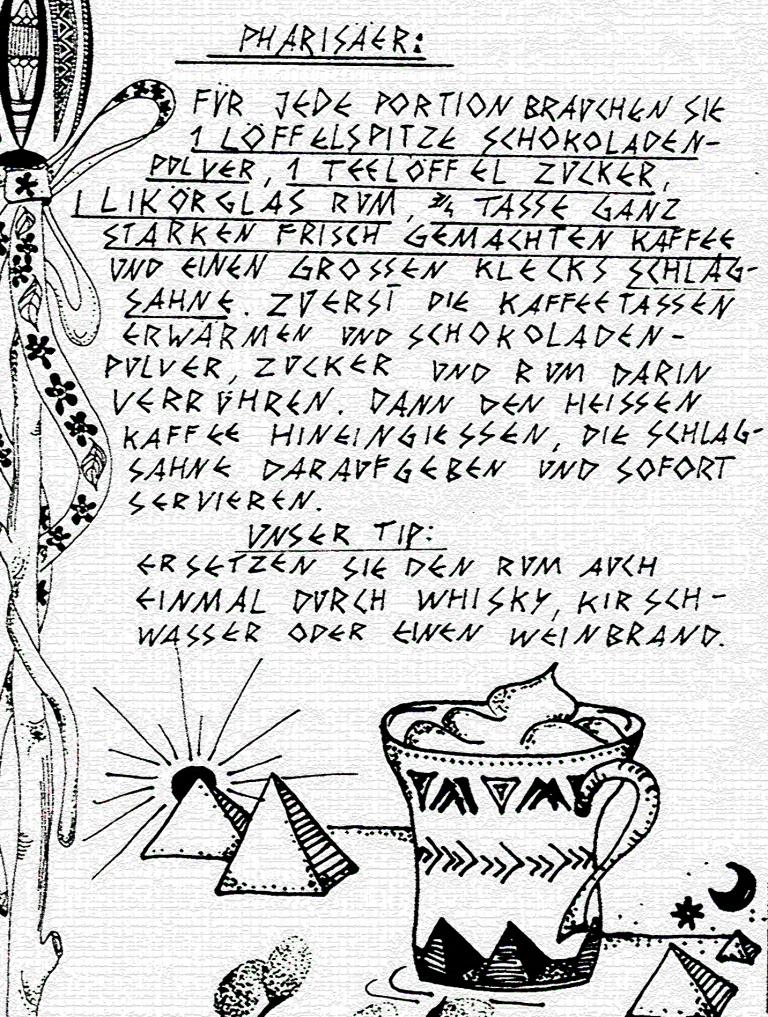 PHARISÄER:
FÜR JEDE PORTION BRAUCHEN SIE
1 LÖFFELSPITZE SCHOKOLADEN-
PULVER, 1 TEELÖFFEL ZUCKER,
1 LIKÖRGLAS RUM, 3/4 TASSE GANZ
STARKEN FRISCH GEMACHTEN KAFFEE
UND EINEN GROSSEN KLECKS SCHLAG-
SAHNE. ZUERST DIE KAFFEETASSEN
ERWÄRMEN UND SCHOKOLADEN-
PULVER, ZUCKER UND RUM DARIN
VERRÜHREN. DANN DEN HEISSEN
KAFFEE HINEINGIESSEN, DIE SCHLAG-
SAHNE DARAUFGEBEN UND SOFORT
SERVIEREN.
UNSER TIP:
ERSETZEN SIE DEN RUM AUCH
EINMAL DURCH WHISKY, KIRSCH-
WASSER ODER EINEN WEINBRAND.